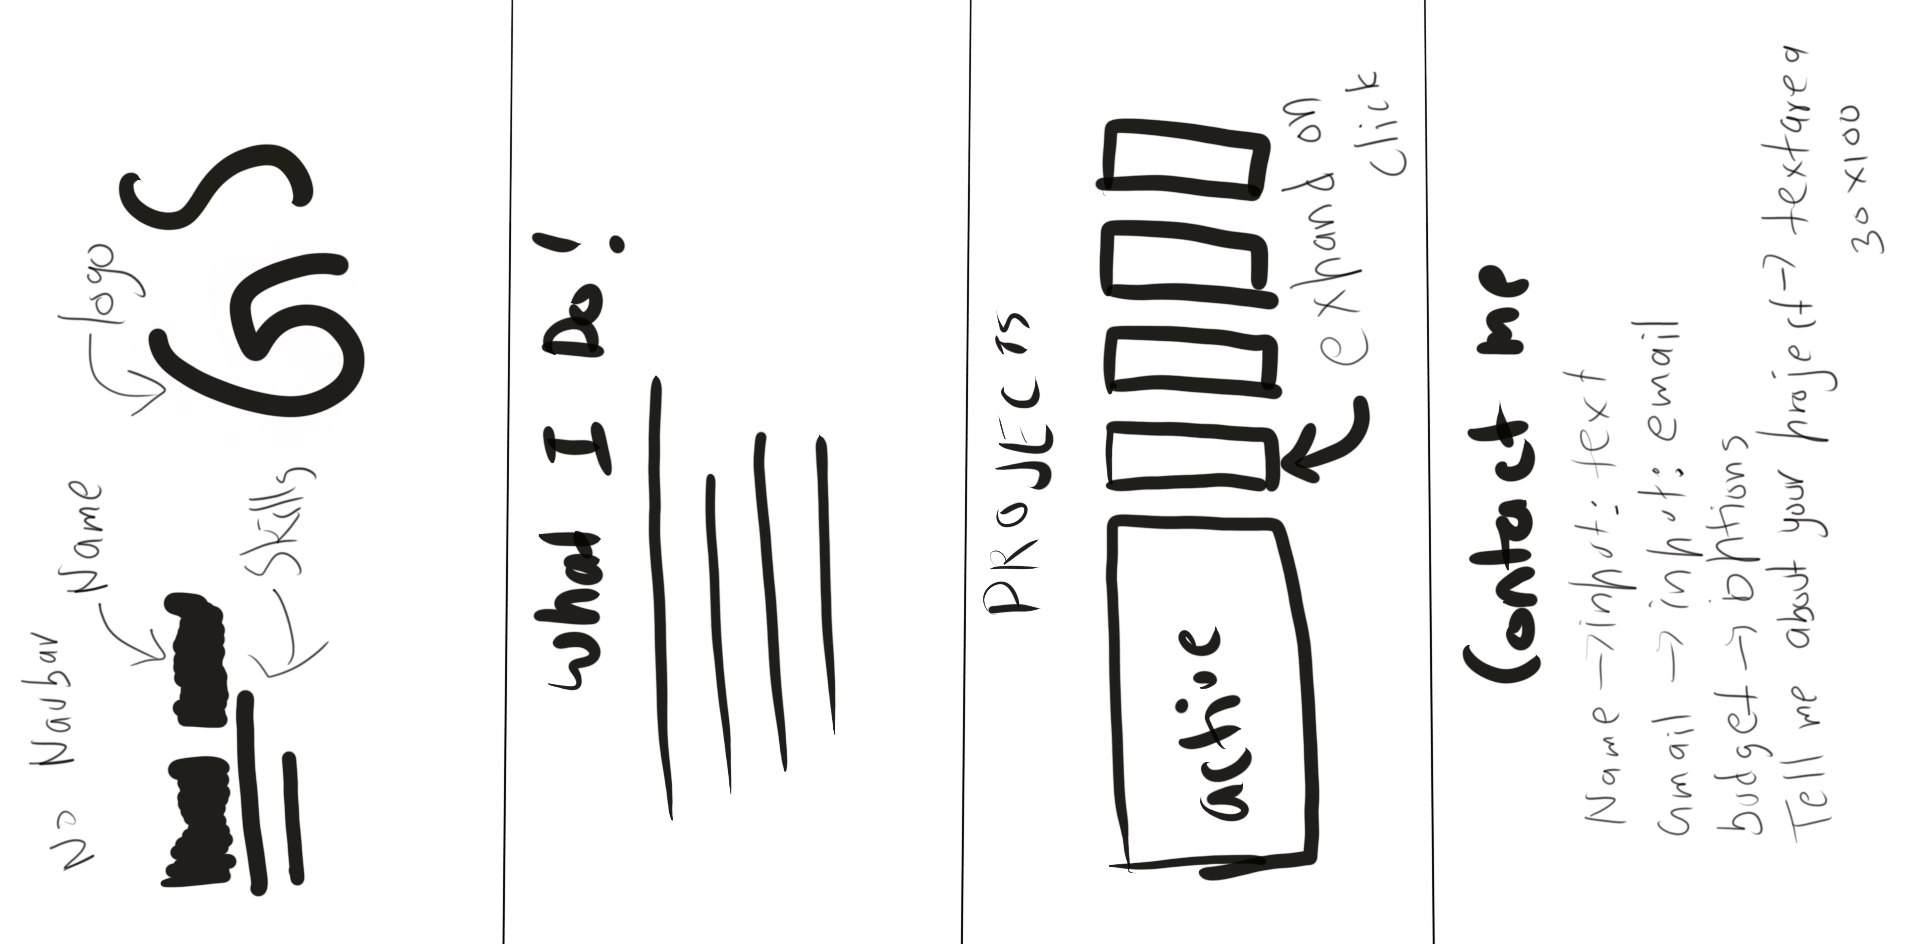 No Navbar
Name
logo
GS
Skills
What I Do!
PROJECTS
active
exhand on
click
Contact me
Name →input: text
Gmail → input: email
budget → options
Tell me about your project→ textarea
30x100